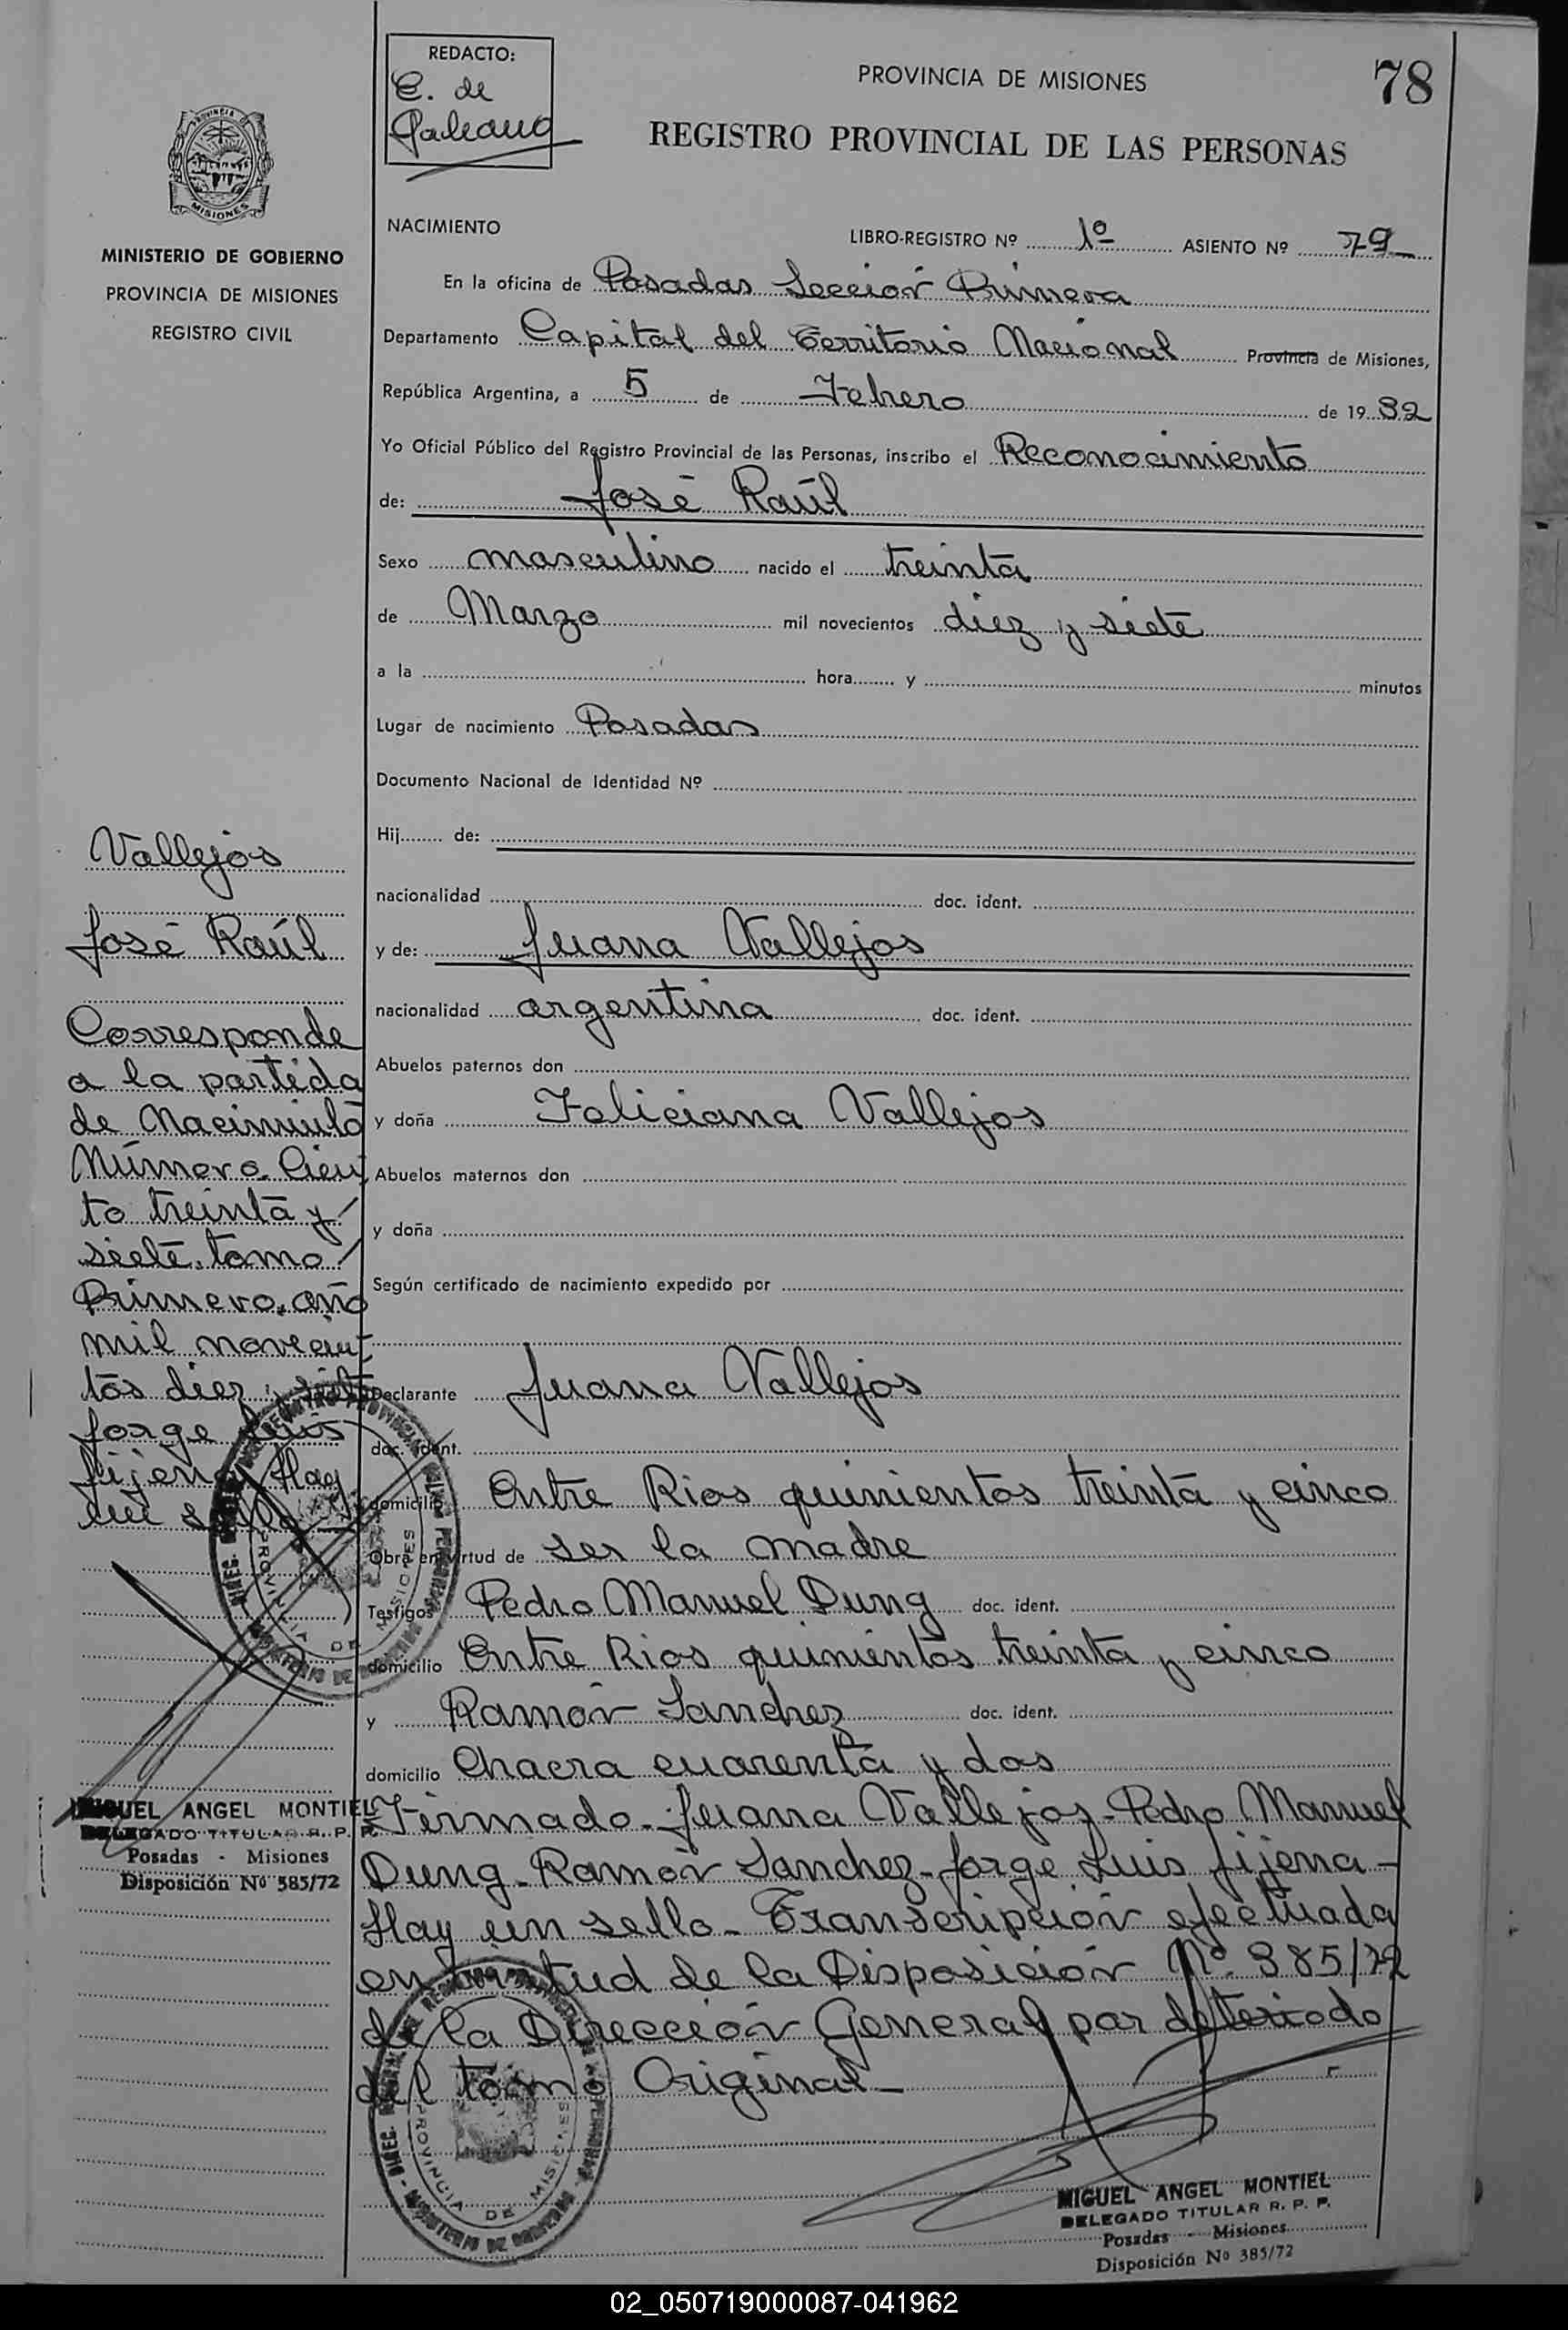 REDACTO:
E. de
Galeano
PROVINCIA DE MISIONES
78
REGISTRO PROVINCIAL DE LAS PERSONAS
MISIONES
MINISTERIO DE GOBIERNO
PROVINCIA DE MISIONES
REGISTRO CIVIL
NACIMIENTO
LIBRO-REGISTRO Nº 1º ASIENTO Nº 79
En la oficina de Posadas Sección Primera
Departamento Capital del Territorio Nacional Provincia de Misiones,
República Argentina, a 5 de Febrero de 1932
Yo Oficial Público del Registro Provincial de las Personas, inscribo el Reconocimiento
de: José Raúl
Sexo masculino nacido el treinta
de Marzo mil novecientos diez y siete
a la hora y minutos
Lugar de nacimiento Posadas
Documento Nacional de Identidad Nº
Hij de:
nacionalidad doc. ident.
y de: Juana Vallejos
nacionalidad argentina doc. ident.
Abuelos paternos don
y doña Feliciana Vallejos
Abuelos maternos don
y doña
Según certificado de nacimiento expedido por
Declarante Juana Vallejos
doc. ident.
domicilio Entre Rios quinientos treinta y cinco
Obra en virtud de ser la madre
Testigos Pedro Manuel Dung doc. ident.
domicilio Entre Rios quinientos treinta y cinco
y Ramón Sanchez doc. ident.
domicilio Chacra cuarenta y dos
Firmado-Juana Vallejos-Pedro Manuel
Dung-Ramón Sanchez-Jorge Luis Jijena-
Hay un sello- Transcripción efectuada
en virtud de la Disposición Nº 385/72
de la Dirección General por deteriodo
del tomo Original-
Vallejos
José Raúl
Corresponde
a la partida
de Nacimiento
Número Cien
to treinta y/
siete, tomo/
Primero, año
mil novecien
tos diez y siete
Jorge Luis
Jijena Hay
un sello-
MIGUEL ANGEL MONTIEL
DELEGADO TITULAR R. P. P.
Posadas - Misiones
Disposición Nº 385/72
PROVINCIA DE MISIONES
PROVINCIA DE MISIONES
MIGUEL ANGEL MONTIEL
DELEGADO TITULAR R. P. P.
Posadas - Misiones
Disposición Nº 385/72
02_050719000087-041962